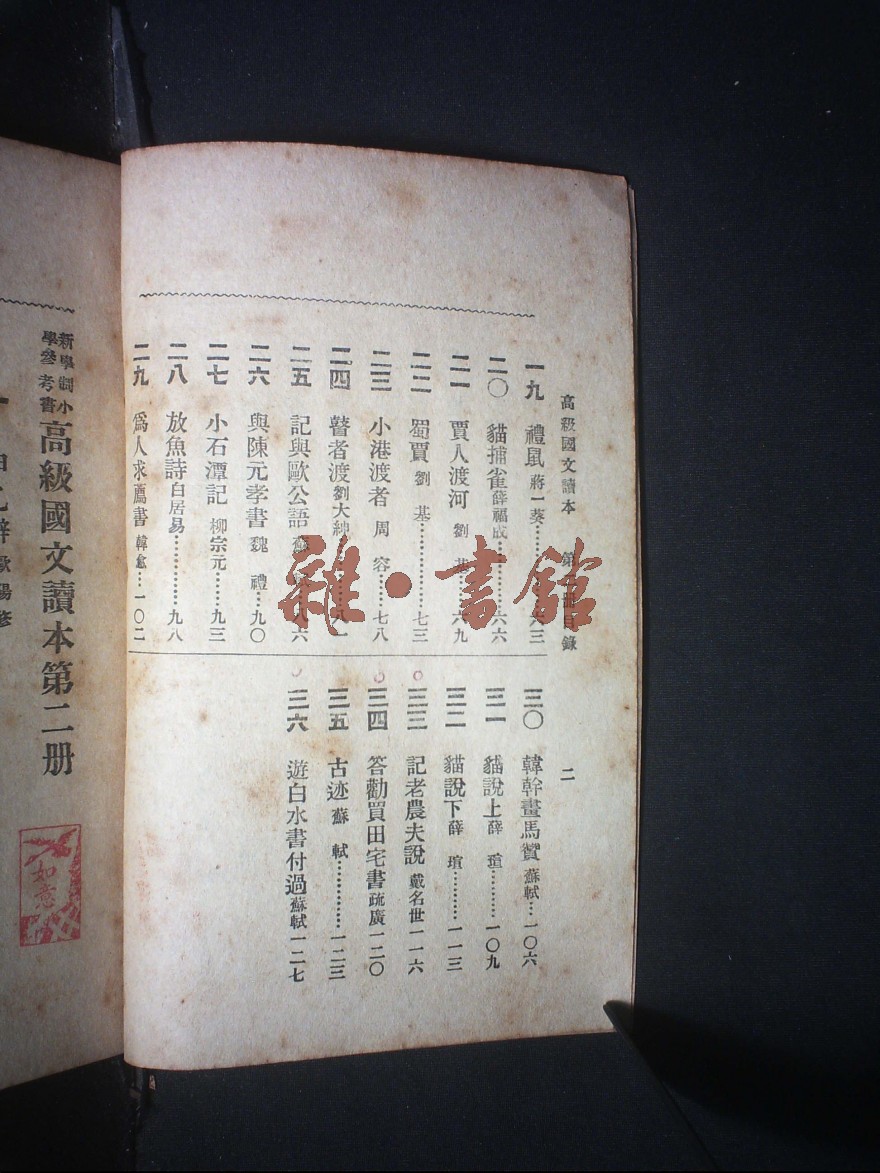 高級國文讀本 第 冊目錄 二
一九 禮鼠 蔣一葵……六三
二〇 貓捕雀 薛福成……六六
二一 賈人渡河 劉基……六九
二二 蜀賈 劉基……七三
二三 小港渡者 周容……七八
二四 瞽者渡 劉大紳……八一
二五 記與歐公語 蘇 八六
二六 與陳元孝書 魏禮…九〇
二七 小石潭記 柳宗元……九三
二八 放魚詩 白居易……九八
二九 爲人求薦書 韓愈…一〇二
三〇 韓幹畫馬贊 蘇軾…一〇六
三一 貓說上 薛瑄……一〇九
三二 貓說下 薛瑄……一一三
三三 記老農夫說 戴名世 一一六
三四 答勸買田宅書 疏廣 一二〇
三五 古迹 蘇軾……一二三
三六 遊白水書付過 蘇軾 一二七
新學制小學參考書 高級國文讀本第二册
如意
雜·書館